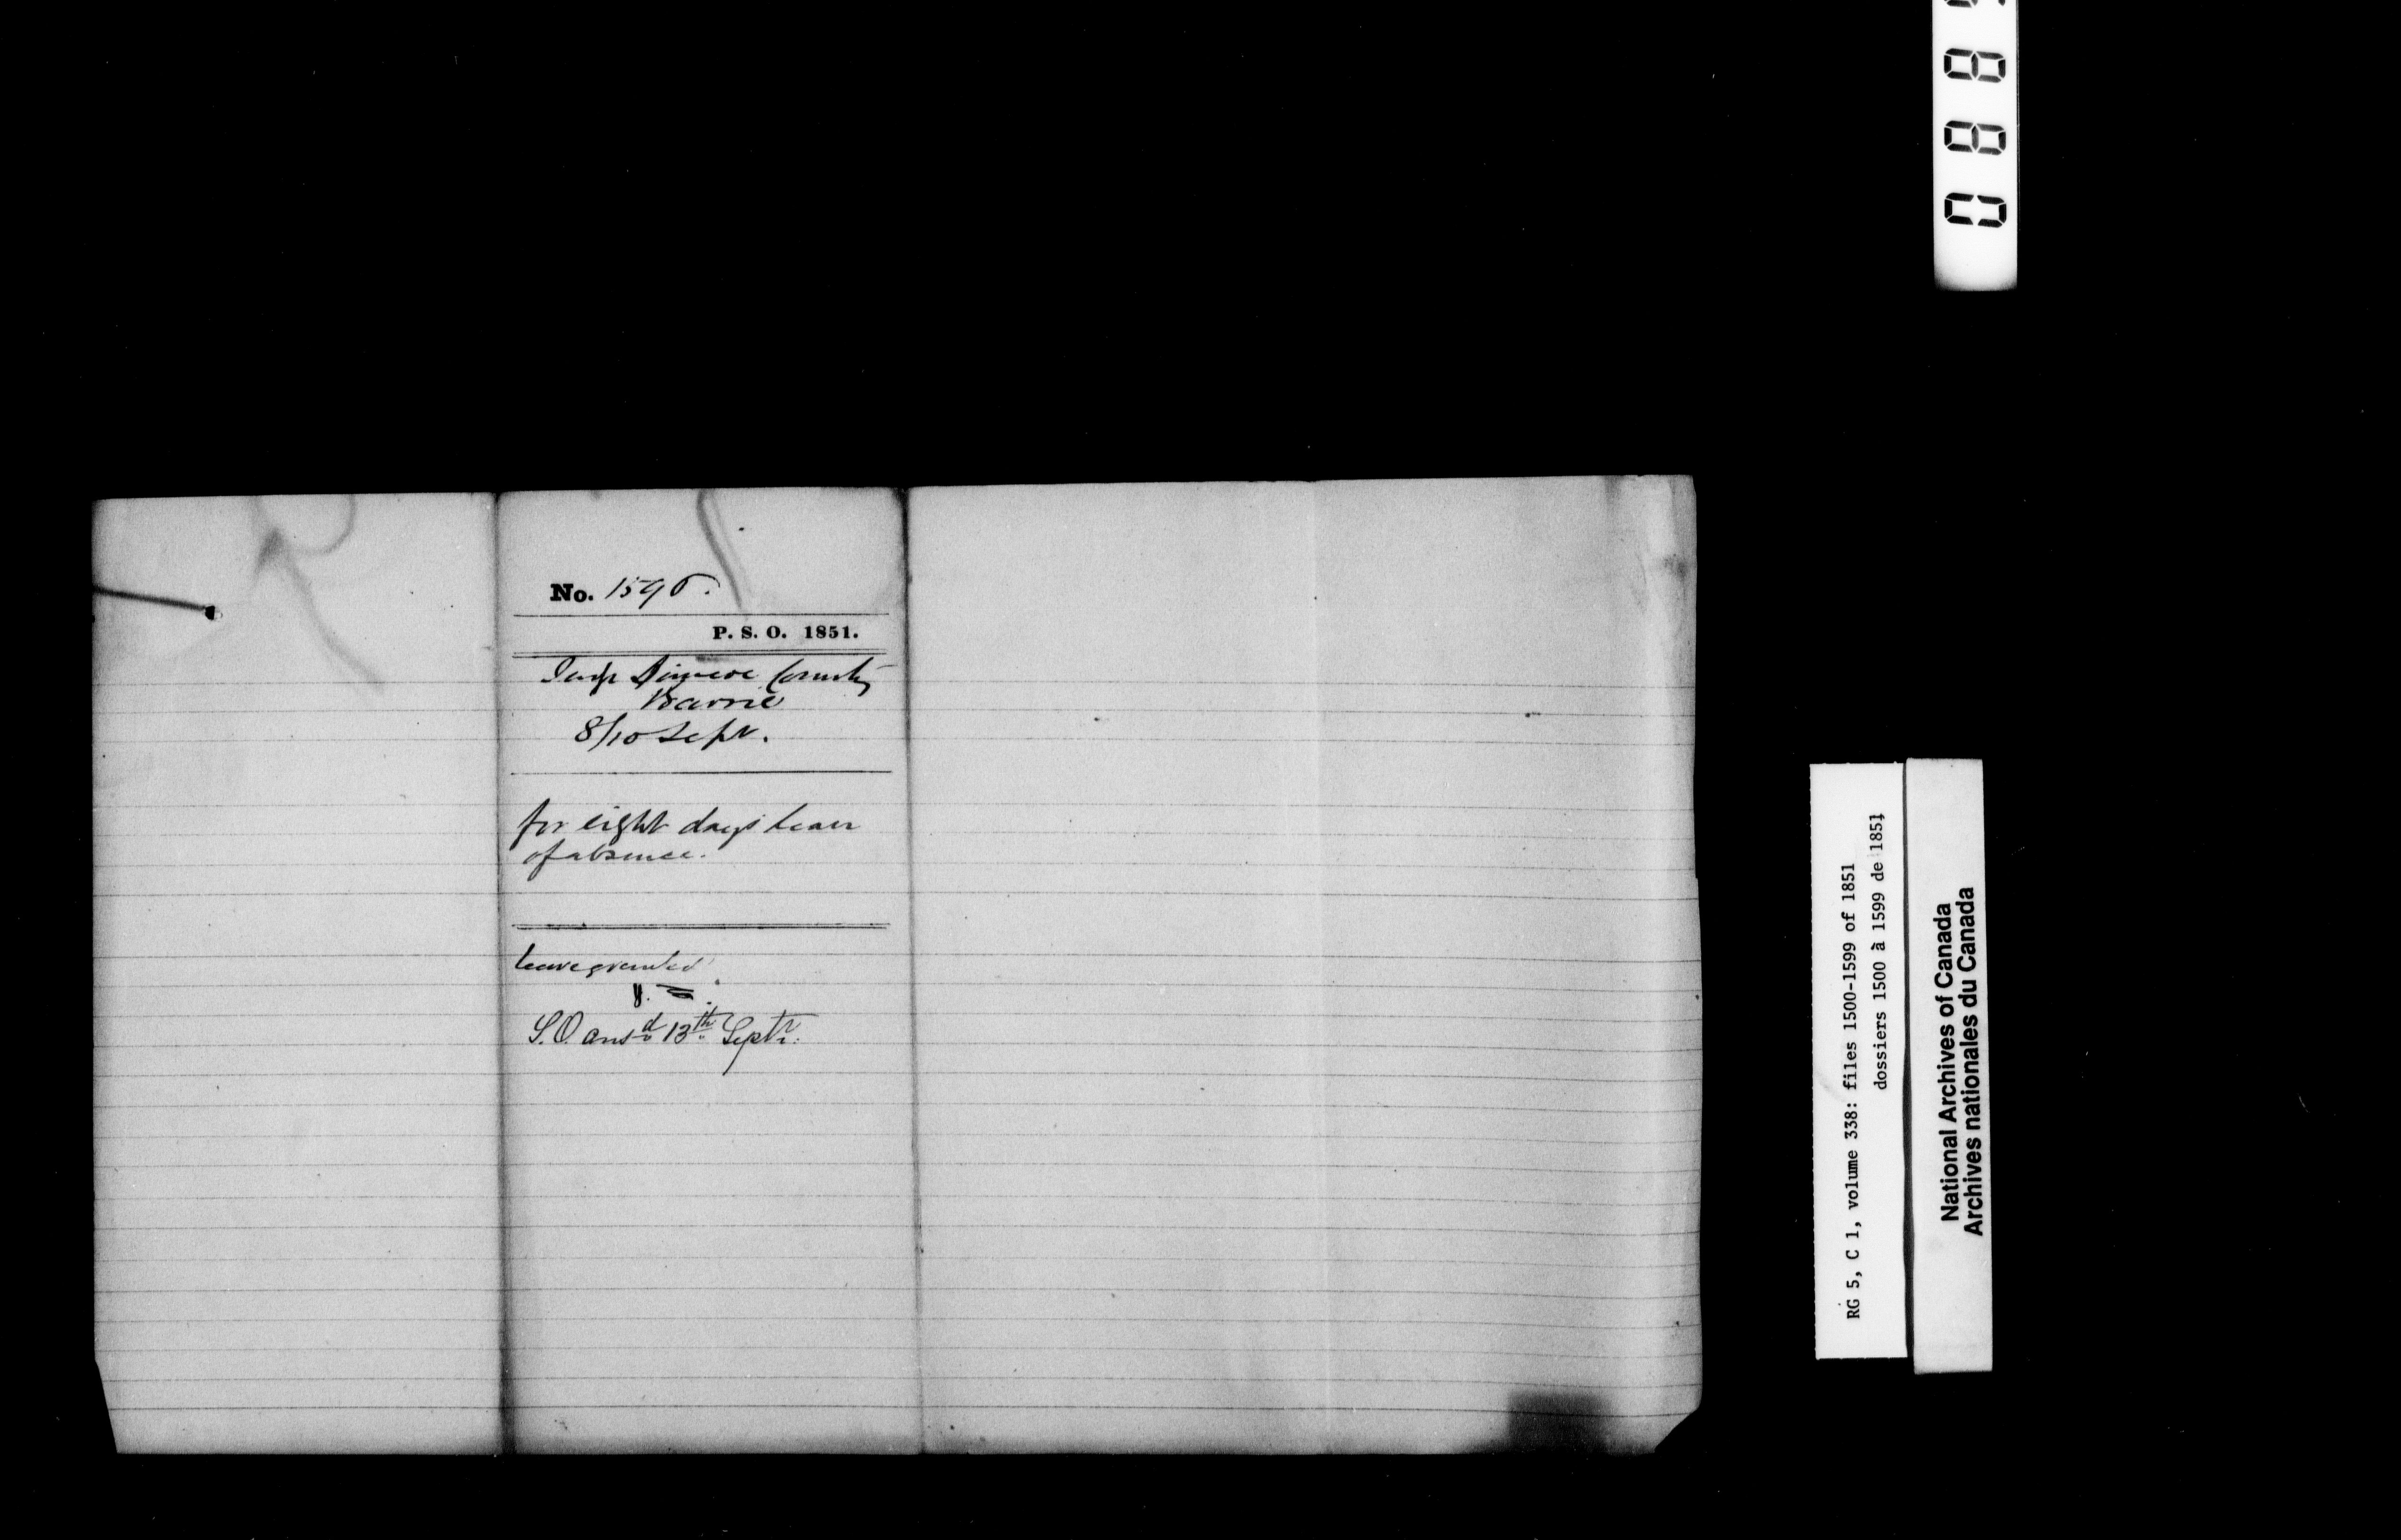 No. 1596.
P. S. O. 1851.
Judge Simcoe County
Barrie
8/10 Sept.
for eight days leave
of absence.
leave granted
S.O. ansd 13th Septr.
RG 5, C 1, volume 338: files 1500-1599 of 1851
dossiers 1500 à 1599 de 1851
National Archives of Canada
Archives nationales du Canada
0 8 8